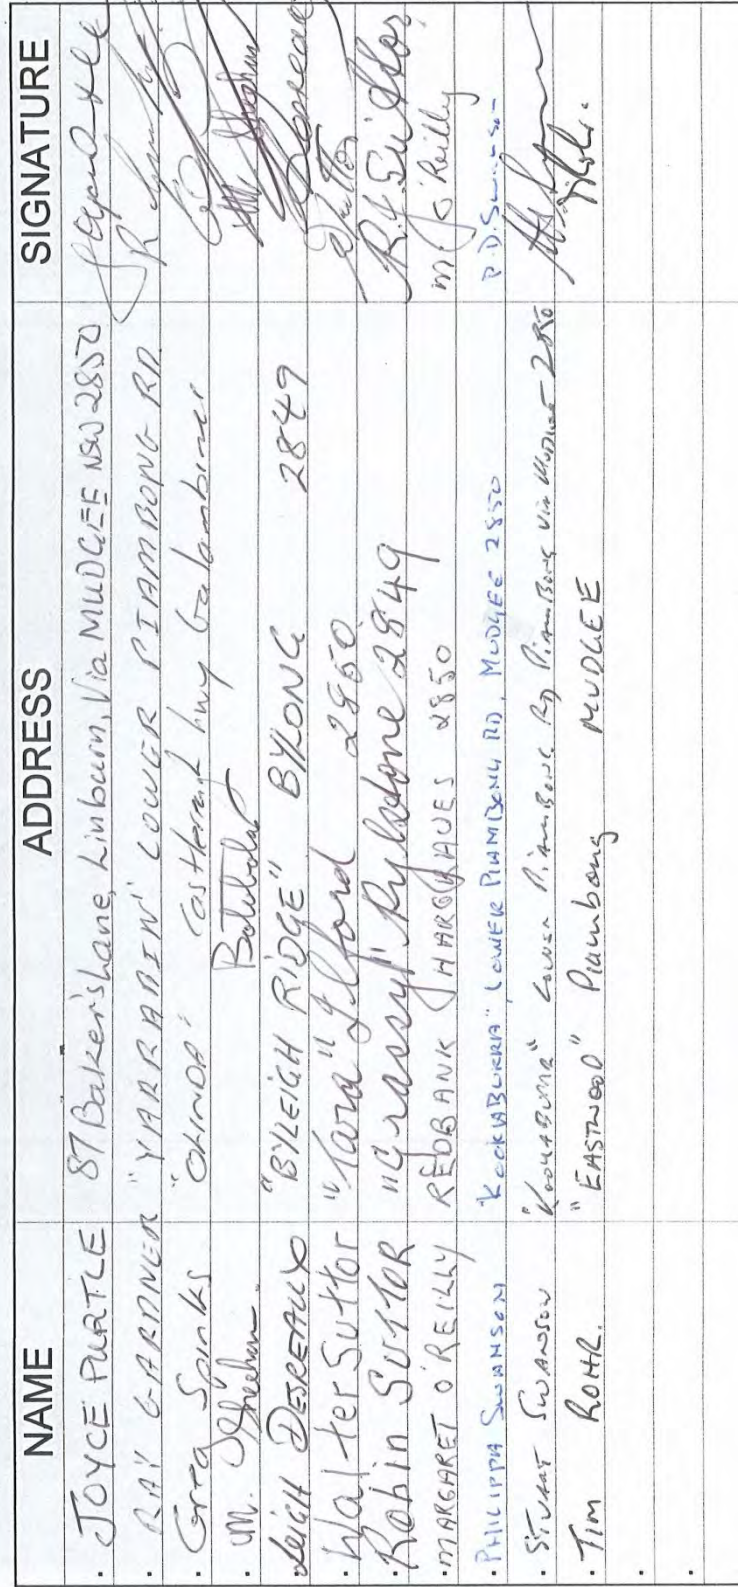 NAME ADDRESS SIGNATURE
JOYCE PURTLE 87 Bakers Lane, Linburn, Via MUDGEE NSW 2850
RAY GARDNER "YARRABIN" LOWER PIAMBONG RD.
Greg Spinks "OLINDA" Castlereagh hwy Galambine
M. Sheehan Botobolar
LEIGH DESREAUX "BYLEIGH RIDGE" BYLONG 2849
Walter Suttor "Tara" Ilford 2850 Suttor
Robin SUTTOR "Grassy" Rylstone 2849 R.J Suttor
MARGARET O'REILLY REDBANK HARGRAVES 2850 M. J O'Reilly
PHILIPPA SWANSON "KOOKABURRA" LOWER PIAMBONG RD, MUDGEE 2850 P.D. Swanson
STUART SWANSON "KOOKABURRA" LOWER PIAMBONG RD PIAMBONG VIA MUDGEE 2850
TIM ROHR. "EASTWOOD" Piambong MUDGEE